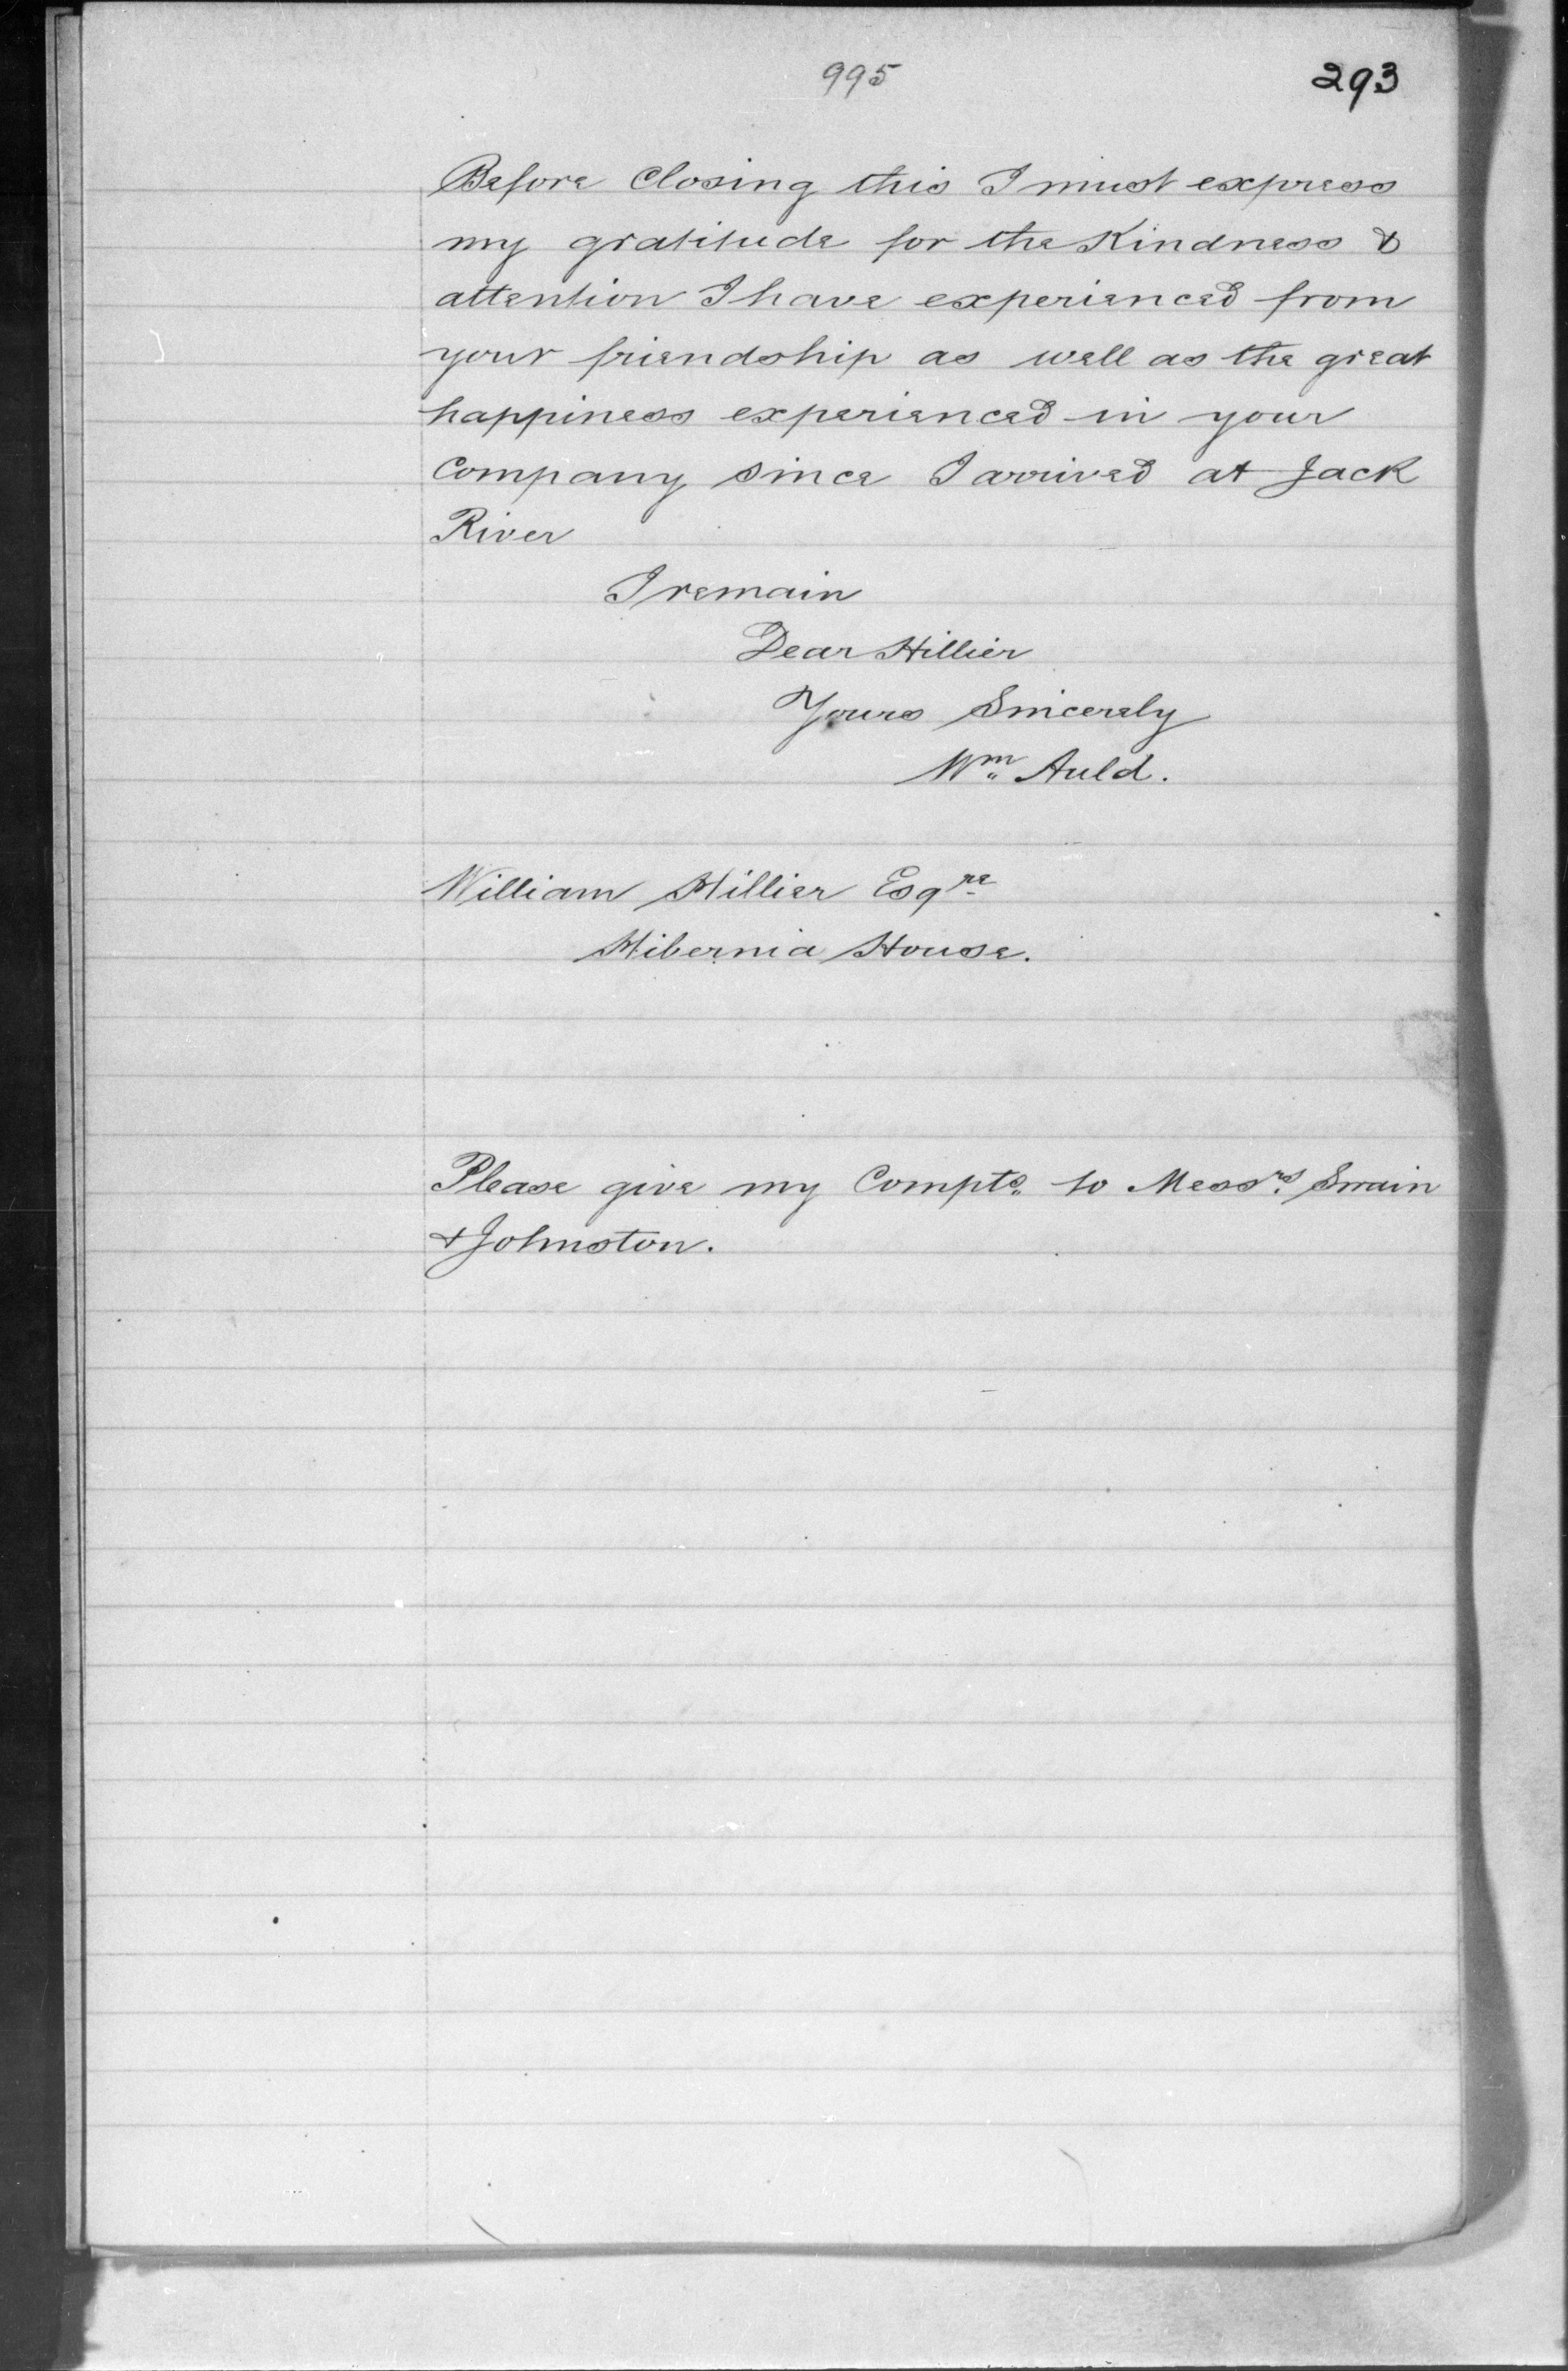 995
293
Before Closing this I must express
my gratitude for the Kindness &
attention I have experienced from
your friendship as well as the great
happiness experienced in your
Company since I arrived at Jack
River
I remain
Dear Hillier
Yours Sincerely
Wm Auld.
William Hillier Esqre
Hibernia House.
Please give my Compts. to Messrs. Swain
& Johnston.